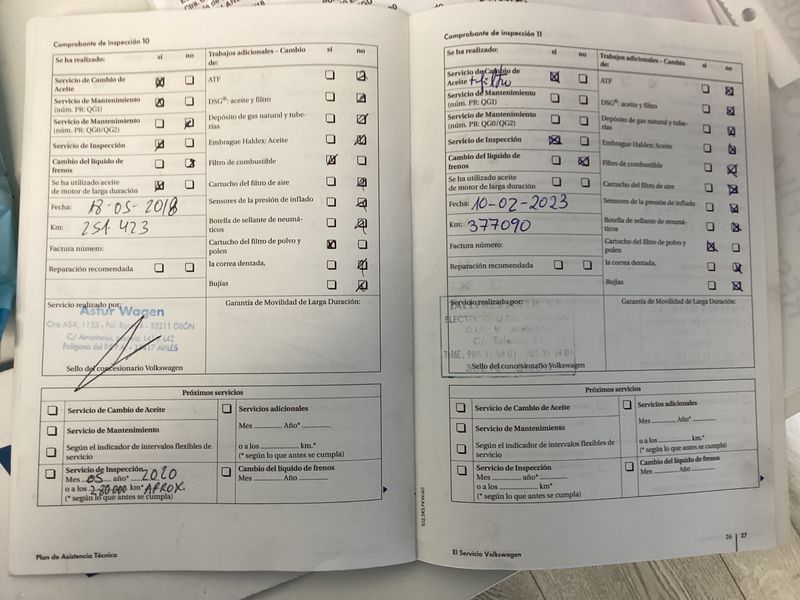 Comprobante de inspección 10
Se ha realizado: sí no
Trabajos adicionales – Cambio de: sí no
Servicio de Cambio de Aceite
ATF
Servicio de Mantenimiento (núm. PR: QG1)
DSG®: aceite y filtro
Servicio de Mantenimiento (núm. PR: QG0/QG2)
Depósito de gas natural y tuberías
Servicio de Inspección
Embrague Haldex: Aceite
Cambio del líquido de frenos
Filtro de combustible
Se ha utilizado aceite de motor de larga duración
Cartucho del filtro de aire
Fecha: 18-05-2018
Sensores de la presión de inflado
Km: 251.423
Botella de sellante de neumáticos
Factura número:
Cartucho del filtro de polvo y polen
Reparación recomendada
la correa dentada,
Bujías
Servicio realizado por:
Garantía de Movilidad de Larga Duración:
Astur Wagen
33211 GIJÓN
AVILÉS
Sello del concesionario Volkswagen
Próximos servicios
Servicio de Cambio de Aceite
Servicios adicionales
Servicio de Mantenimiento
Mes .......... Año* ..........
Según el indicador de intervalos flexibles de servicio
o a los .......... km.*
(* según lo que antes se cumpla)
Servicio de Inspección
Cambio del líquido de frenos
Mes 05 año* 2020
Mes .......... Año ..........
o a los 280000 km* APROX.
(* según lo que antes se cumpla)
Plan de Asistencia Técnica
Comprobante de inspección 11
Se ha realizado: sí no
Trabajos adicionales – Cambio de: sí no
Servicio de Cambio de Aceite + filtro
ATF
Servicio de Mantenimiento (núm. PR: QG1)
DSG®: aceite y filtro
Servicio de Mantenimiento (núm. PR: QG0/QG2)
Depósito de gas natural y tuberías
Servicio de Inspección
Embrague Haldex: Aceite
Cambio del líquido de frenos
Filtro de combustible
Se ha utilizado aceite de motor de larga duración
Cartucho del filtro de aire
Fecha: 10-02-2023
Sensores de la presión de inflado
Km: 377090
Botella de sellante de neumáticos
Factura número:
Cartucho del filtro de polvo y polen
Reparación recomendada
la correa dentada,
Bujías
Servicio realizado por:
Garantía de Movilidad de Larga Duración:
Sello del concesionario Volkswagen
Próximos servicios
Servicio de Cambio de Aceite
Servicios adicionales
Servicio de Mantenimiento
Mes .......... Año* ..........
Según el indicador de intervalos flexibles de servicio
o a los .......... km.*
(* según lo que antes se cumpla)
Servicio de Inspección
Cambio del líquido de frenos
Mes .......... año* ..........
Mes .......... Año ..........
o a los .......... km*
(* según lo que antes se cumpla)
El Servicio Volkswagen
26 | 27